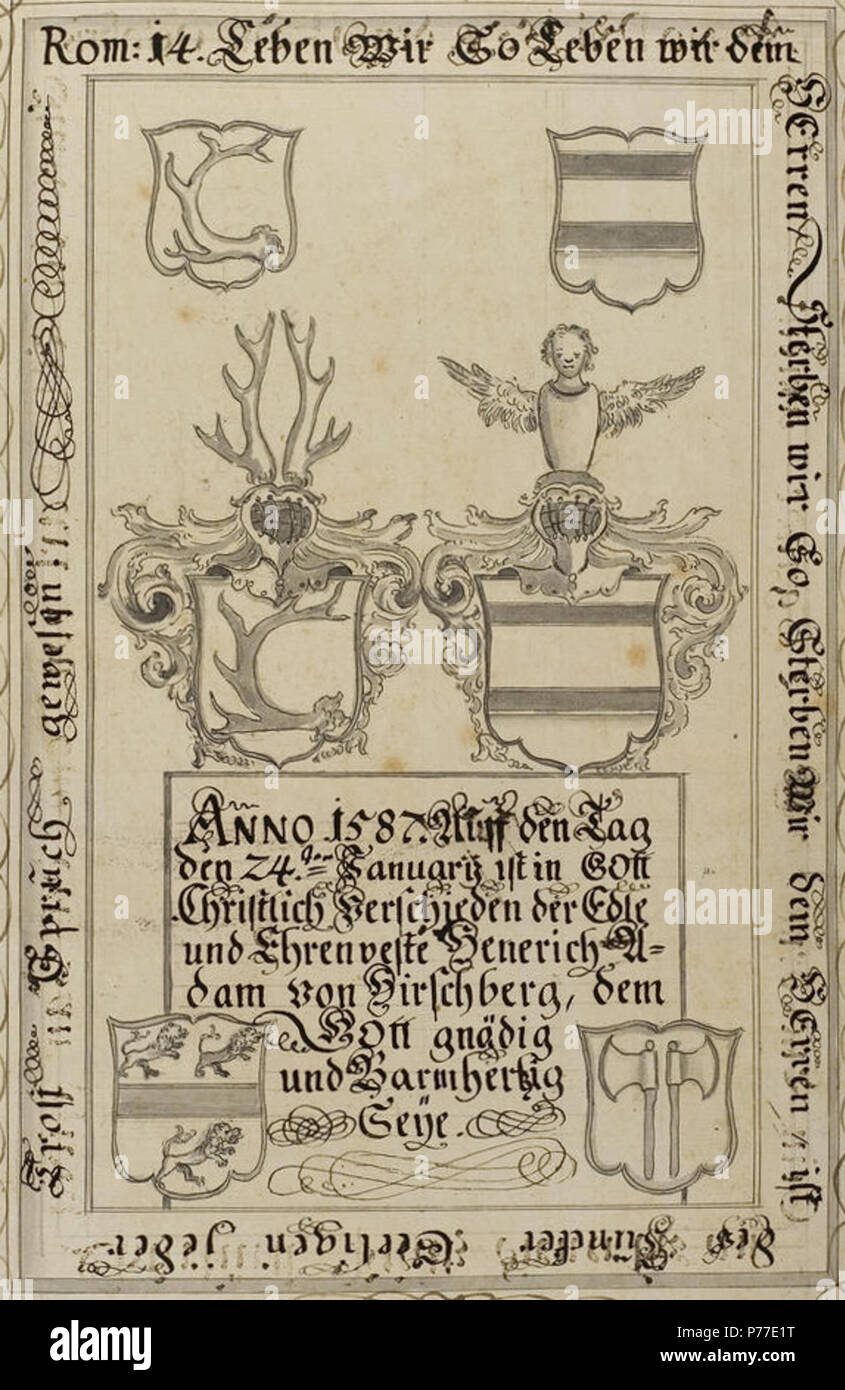 Rom: 14. Leben Wir So Leben wir dem
HErren, Sterben wir So, Sterben Wir dem HErren, ist
des Juncker Seeligen jeder
Trost Spruch gewesen
ANNO 1587. Auff den Tag
den 24.ten January ist in GOtt
Christlich Verschieden der Edle
und Ehrenveste Henerich A-
dam von Hirschberg, dem
GOtt gnädig
und Barmhertzig
Seÿe.
alamy
Image ID: P77E1T
www.alamy.com